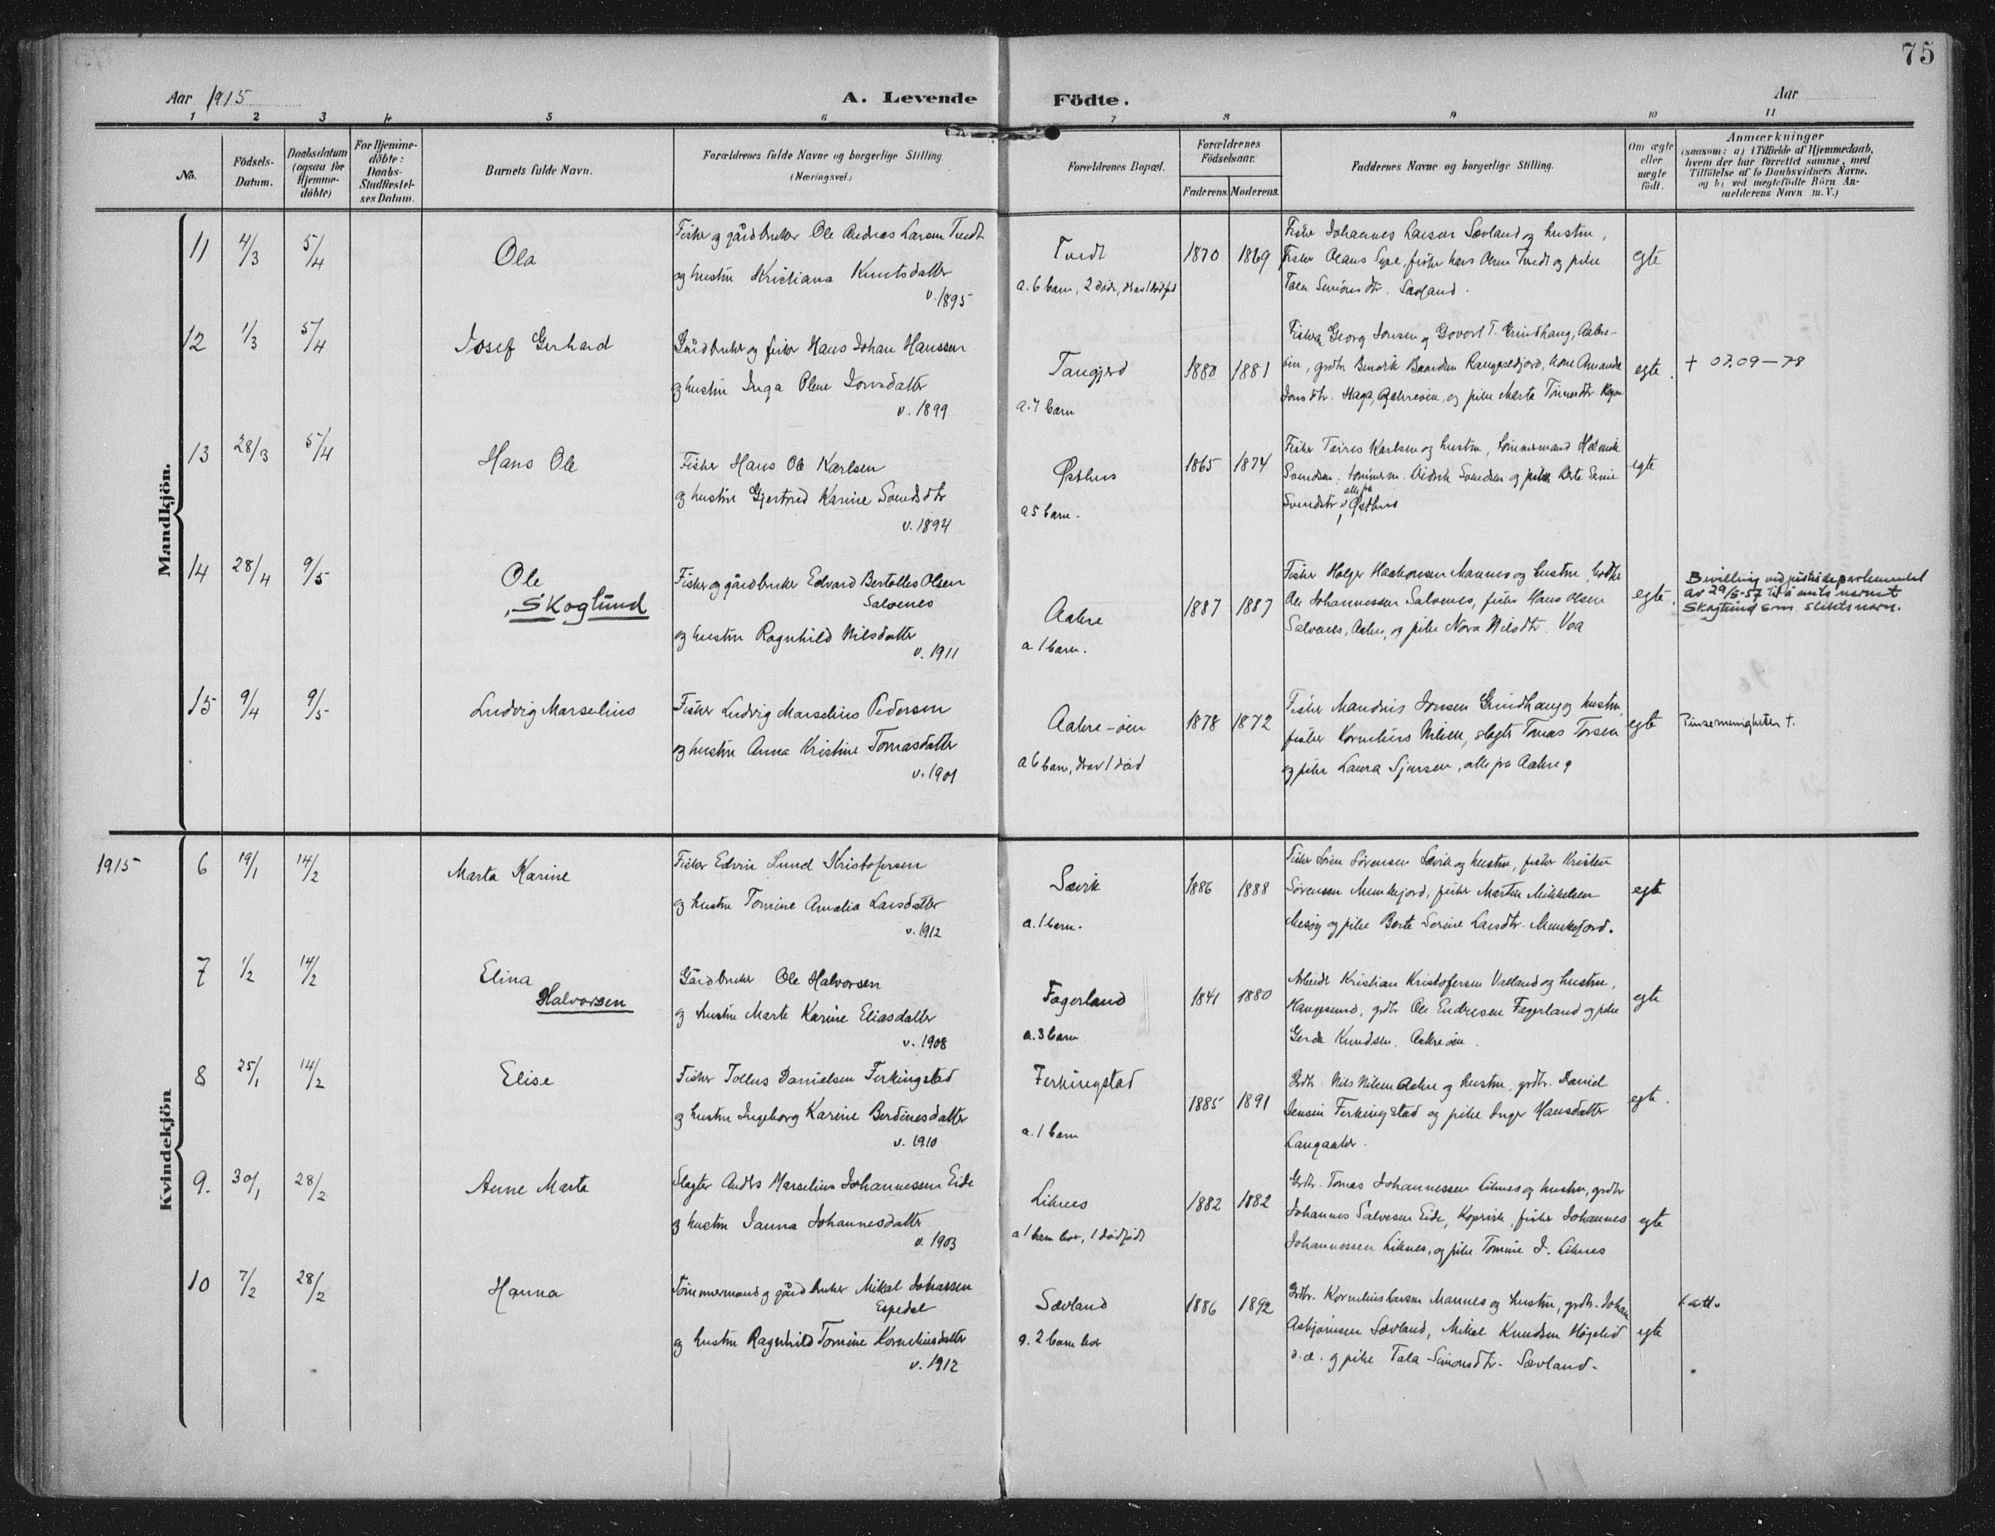 75
Aar 1915
A. Levende Födte.
Aar
1 2 3 4 5 6 7 8 9 10 11
No.
Födsels-
Datum.
Daabsdatum
(ogsaa for
Hjemme-
döbte)
For Hjemme-
döbte:
Daabs-
Stadfæstel-
ses Datum.
Barnets fulde Navn.
Forældrenes fulde Navne og borgerlige Stilling
(Næringsvei.)
Forældrenes Bopæl.
Forældrenes
Födselsaar.
Faderens. Moderens.
Faddernes Navne og borgerlige Stilling.
Om ægte
eller
uægte
födt.
Anmærkninger
(saasom: a) i Tilfælde af Hjemmedaab,
hvem der har forrettet samme, med
Tilföielse af to Daabsvidners Navne.
og b) ved uægtefödte Börn An-
melderens Navn m. V.)
Mandkjön.
11 4/3 5/4 Ola
Fisker og gårdbruker Ole Andreas Larsen Tvedt
og hustru Kristiana Knutsdatter
v. 1895
Tvedt
a. 6 barn, 2 døde, drav 1 dødfød
1870 1869
Fisker Johannes Larsen Sævland og hustru,
Fisker Olaus Sype, fisker Hans Olsen Tvedt og pike
Tala Simonsdtr. Sævland.
egte
12 1/3 5/4 Josef Gerhard
Gårdbruker og fisker Hans Johan Hanssen
og hustru Inga Oline Jonsdatter
v. 1899
Tangjerd
a. 7 barn
1880 1881
Fiskera Georg Jonsen og Govert T. Grindhaug, Aakre-
øen, grdbr. Bendik Kone Amanda
Jonsdtr. Haga, Aakreøen, og pike Marta Tønnesdtr.
egte.
+ 07.09-78
13 28/3 5/4 Hans Ole
Fisker Hans Ole Karlsen
og hustru Gjertrud Karine Svendsdtr
v. 1894
Østhus
a 5 barn.
1865 1874
Fisker Tørres Karlsen og hustru, tømmermand Henrik
Svendsen, tømmerm. Didrik Svendsen og pike Berte Serine
alle fra
Svendsdtr, Østhus
egte
14 28/4 9/5 Ole
, Skoglund
Fisker og gårdbruker Edvard Bertelles Olsen
Salvenes
og hustru Ragnhild Nilsdatter
v. 1911
Aakre
a 1 barn.
1887 1887
Fisker Holger Haakonsen Mannes og hustru, Grdbr
Ole Johannessen Salvenes, fisker Hans Olsen
Salvenes, Aakre, og pike Nora Nilsdtr. Vea
egte.
Bevilling ved justisdepartementet
av 29/5-57 til å anta navnet
Skoglund som slektsnavn.
15 9/4 9/5 Ludvig Marselius
Fisker Ludvig Marselius Pedersen
og hustru Anna Kristine Tomasdatter
v. 1901
Aakre-øen
a 6 barn, drav 1 død
1878 1872
Fisker Mandius Jonsen Grindhaug og hustru,
fisker Kornelius Nilsen, slagter Tomas Torsen
og pike Laura Sjursen, alle fra Aakre ø
egte
Pinsemenigheten +.
Kvindekjön
1915
6 19/1 14/2 Marta Karine
Fisker Edvin Lund Kristofersen
og hustru Tomine Amalia Larsdatter
v. 1912
Sævik
a. 1 barn.
1886 1888
Fisker Sørensen Sævik og hustru, fisker Kristen
Sørensen Munkejord, fisker Martin Mikkelsen
og pike Berte Serine Larsdtr. Munkejord.
egte
7 1/2 14/2 Elina
Halvorsen
Gårdbruker Ole Halvorsen
og hustru Marte Karine Eliasdatter
v. 1908
Fagerland
a. 3 barn
1841 1880
Arbeider Kristian Kristofersen Vælland og hustru,
Haugesund, grdbr Ole Endresen Fagerland og pike
Gerda Knudsen. Aakreøen.
egte
8 25/1 14/2 Elise
Fisker Tollus Danielsen Ferkingstad
og hustru Ingeborg Karine Berdinesdatter
v. 1910
Ferkingstad
a. 1 barn
1885 1891
Grdbr. Nils Nilsen Aakre og hustru, grdbr. Daniel
Jensen Ferkingstad og pike Inger Hansdatter
Langaaker.
egte.
9. 30/1 28/2 Anne Marta
Slagter Anders Marselius Johannessen Eide
og hustru Janna Johannesdatter
v. 1903
Liknes
a 1 barn lev, 1 dødfødt
1882 1882
Grdbr. Tomas Johannessen Liknes og hustru, grdbr
Johannes Salvesen Eide, Kopervik, fisker Johannes
Johannessen Liknes, og pike Tomine J. Liknes
egte
10 7/2 28/2 Hanna
Tømmermand og gårdbruker Mikal Johassen
Espedal
og hustru Ragnhild Tomine Korneliusdatter
v. 1912
Sævland
a. 2 barn lev
1886 1892
Grdbr. Kornelius Larsen Mannes og hustru, grdbr. Johan
Asbjørnsen Sævland, Mikal Knudsen Høgelid
og pike Tala Simonsdtr. Sævland.
egte